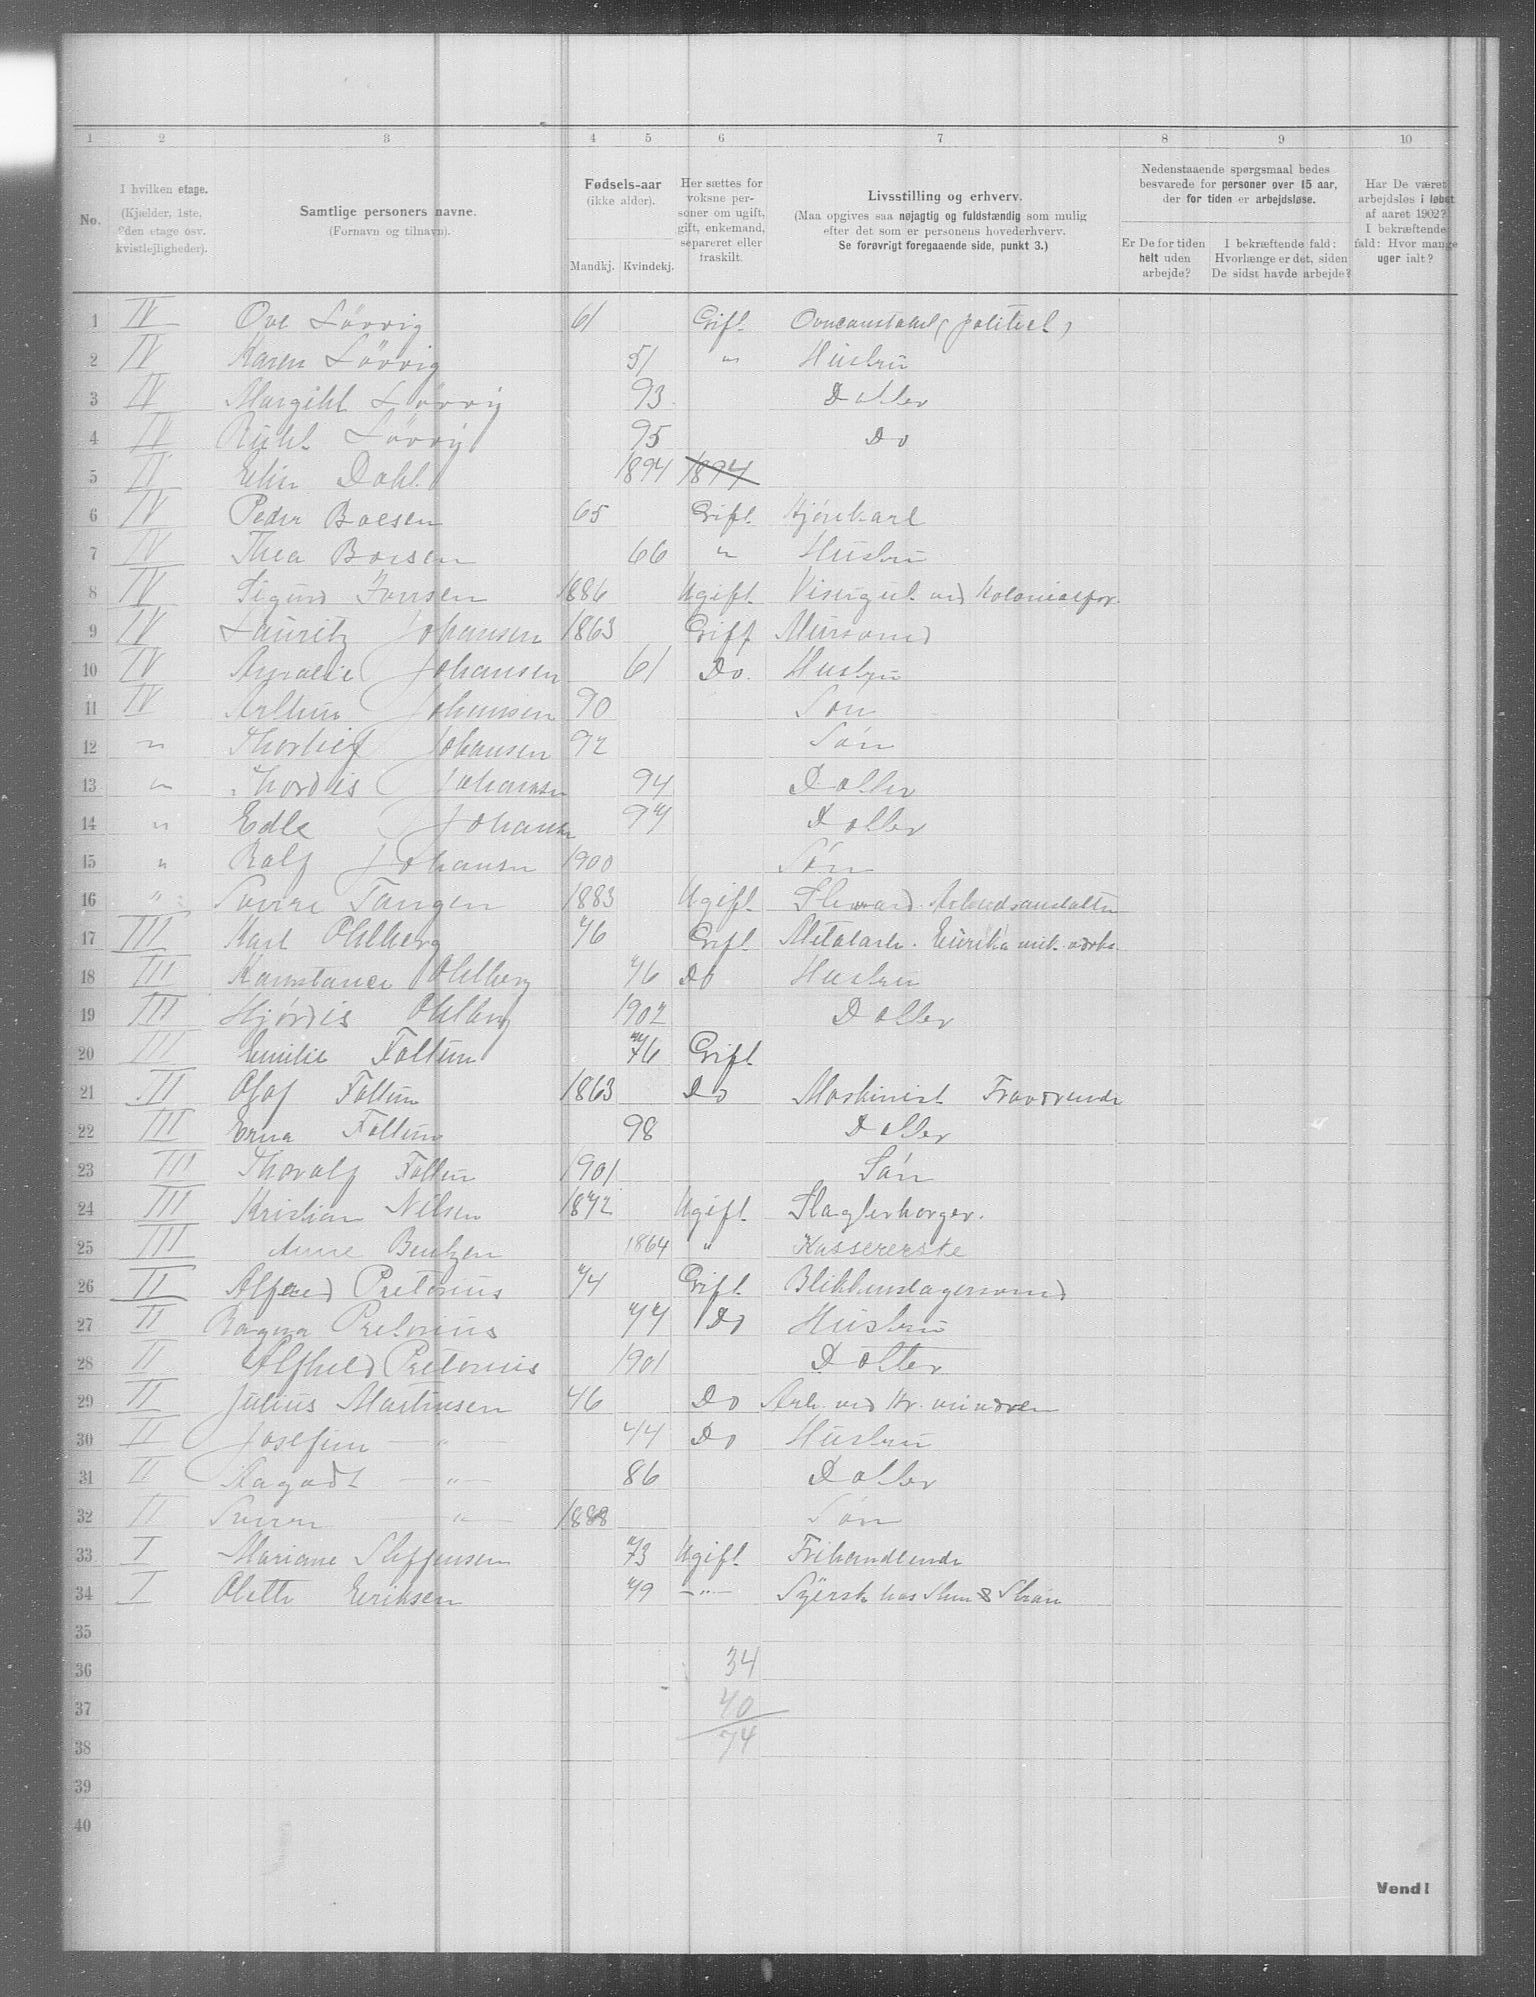 1 2 3 4 5 6 7 8 9 10
No.
I hvilken etage. (Kjælder, 1ste, 2den etage osv. kvistlejligheder).
Samtlige personers navne. (Fornavn og tilnavn).
Fødsels-aar (ikke alder). Mandkj. Kvindekj.
Her sættes for voksne personer om ugift, gift, enkemand, separeret eller fraskilt.
Livsstilling og erhverv. (Maa opgives saa nøjagtig og fuldstændig som mulig efter det som er personens hovederhverv. Se forøvrigt foregaaende side, punkt 3.)
Nedenstaaende spørgsmaal bedes besvarede for personer over 15 aar, der for tiden er arbejdsløse.
Er De for tiden helt uden arbejde?
I bekræftende fald: Hvorlænge er det, siden De sidst havde arbejde?
Har De været arbejdsløs i løbet af aaret 1902? I bekræftende fald: Hvor mange uger ialt?
1 IV Ove Lövvig 61 Gift
2 IV Karen Lövvig 51 " Hustru
3 IV Margiht Lövvig 93 Datter
4 IV Ruht Lövvig 95 Do
5 IV Elin Dahl 1894 1894
6 IV Peder Boesen 65 Gift Kjörekarl
7 IV Thea Boesen 66 " Hustru
8 IV Sigurd Jonsen 1886 Ugift Visergut ved Kolonialfor.
9 IV Lauritz Johansen 1863 Gift Mursvend
10 IV Amalie Johansen 61 Do. Hustru
11 IV Arthur Johansen 90 Son
12 " Thorleif Johansen 92 Sön
13 " Thordis Johansen 94 Datter
14 " Edle Johansen 97 Datter
15 " Rolf Johansen 1900 Sön
16 " Sverre Tangen 1883 Ugift Arbeidsanstalten
17 III Karl Ohlberg 76 Gift Metalarb. Eurika mek. værks.
18 III Konstance Ohlberg 76 Do Hustru
19 III Hjördis Ohlberg 1902 Datter
20 III Emilie Foltun 76 Gift
21 III Olaf Foltun 1863 Do Maskinist Fraværende
22 III Erna Foltun 98 Datter
23 III Thoralf Foltun 1901 Sön
24 III Kristian Nilsen 1872 Ugift Slagterborger.
25 III Anne Bentzen 1864 " Kassererske
26 II Alfred Pretorius 74 Gift Blikkenslagersvend
27 II Ragna Pretorius 77 Do Hustru
28 II Alfhild Pretorius 1901 Datter
29 II Julius Martinsen 46 Do Arb. ved
30 II Josefine — " — 44 Do Hustru
31 II Aagodt — " — 86 Datter
32 II Sverre — " — 1888 Sön
33 I Mariane Steffensen 73 Ugift Frihandlende
34 I Olette Eriksen 79 — " — Syersk hos
35
36 34
37 40
38 74
39
40
Vend!